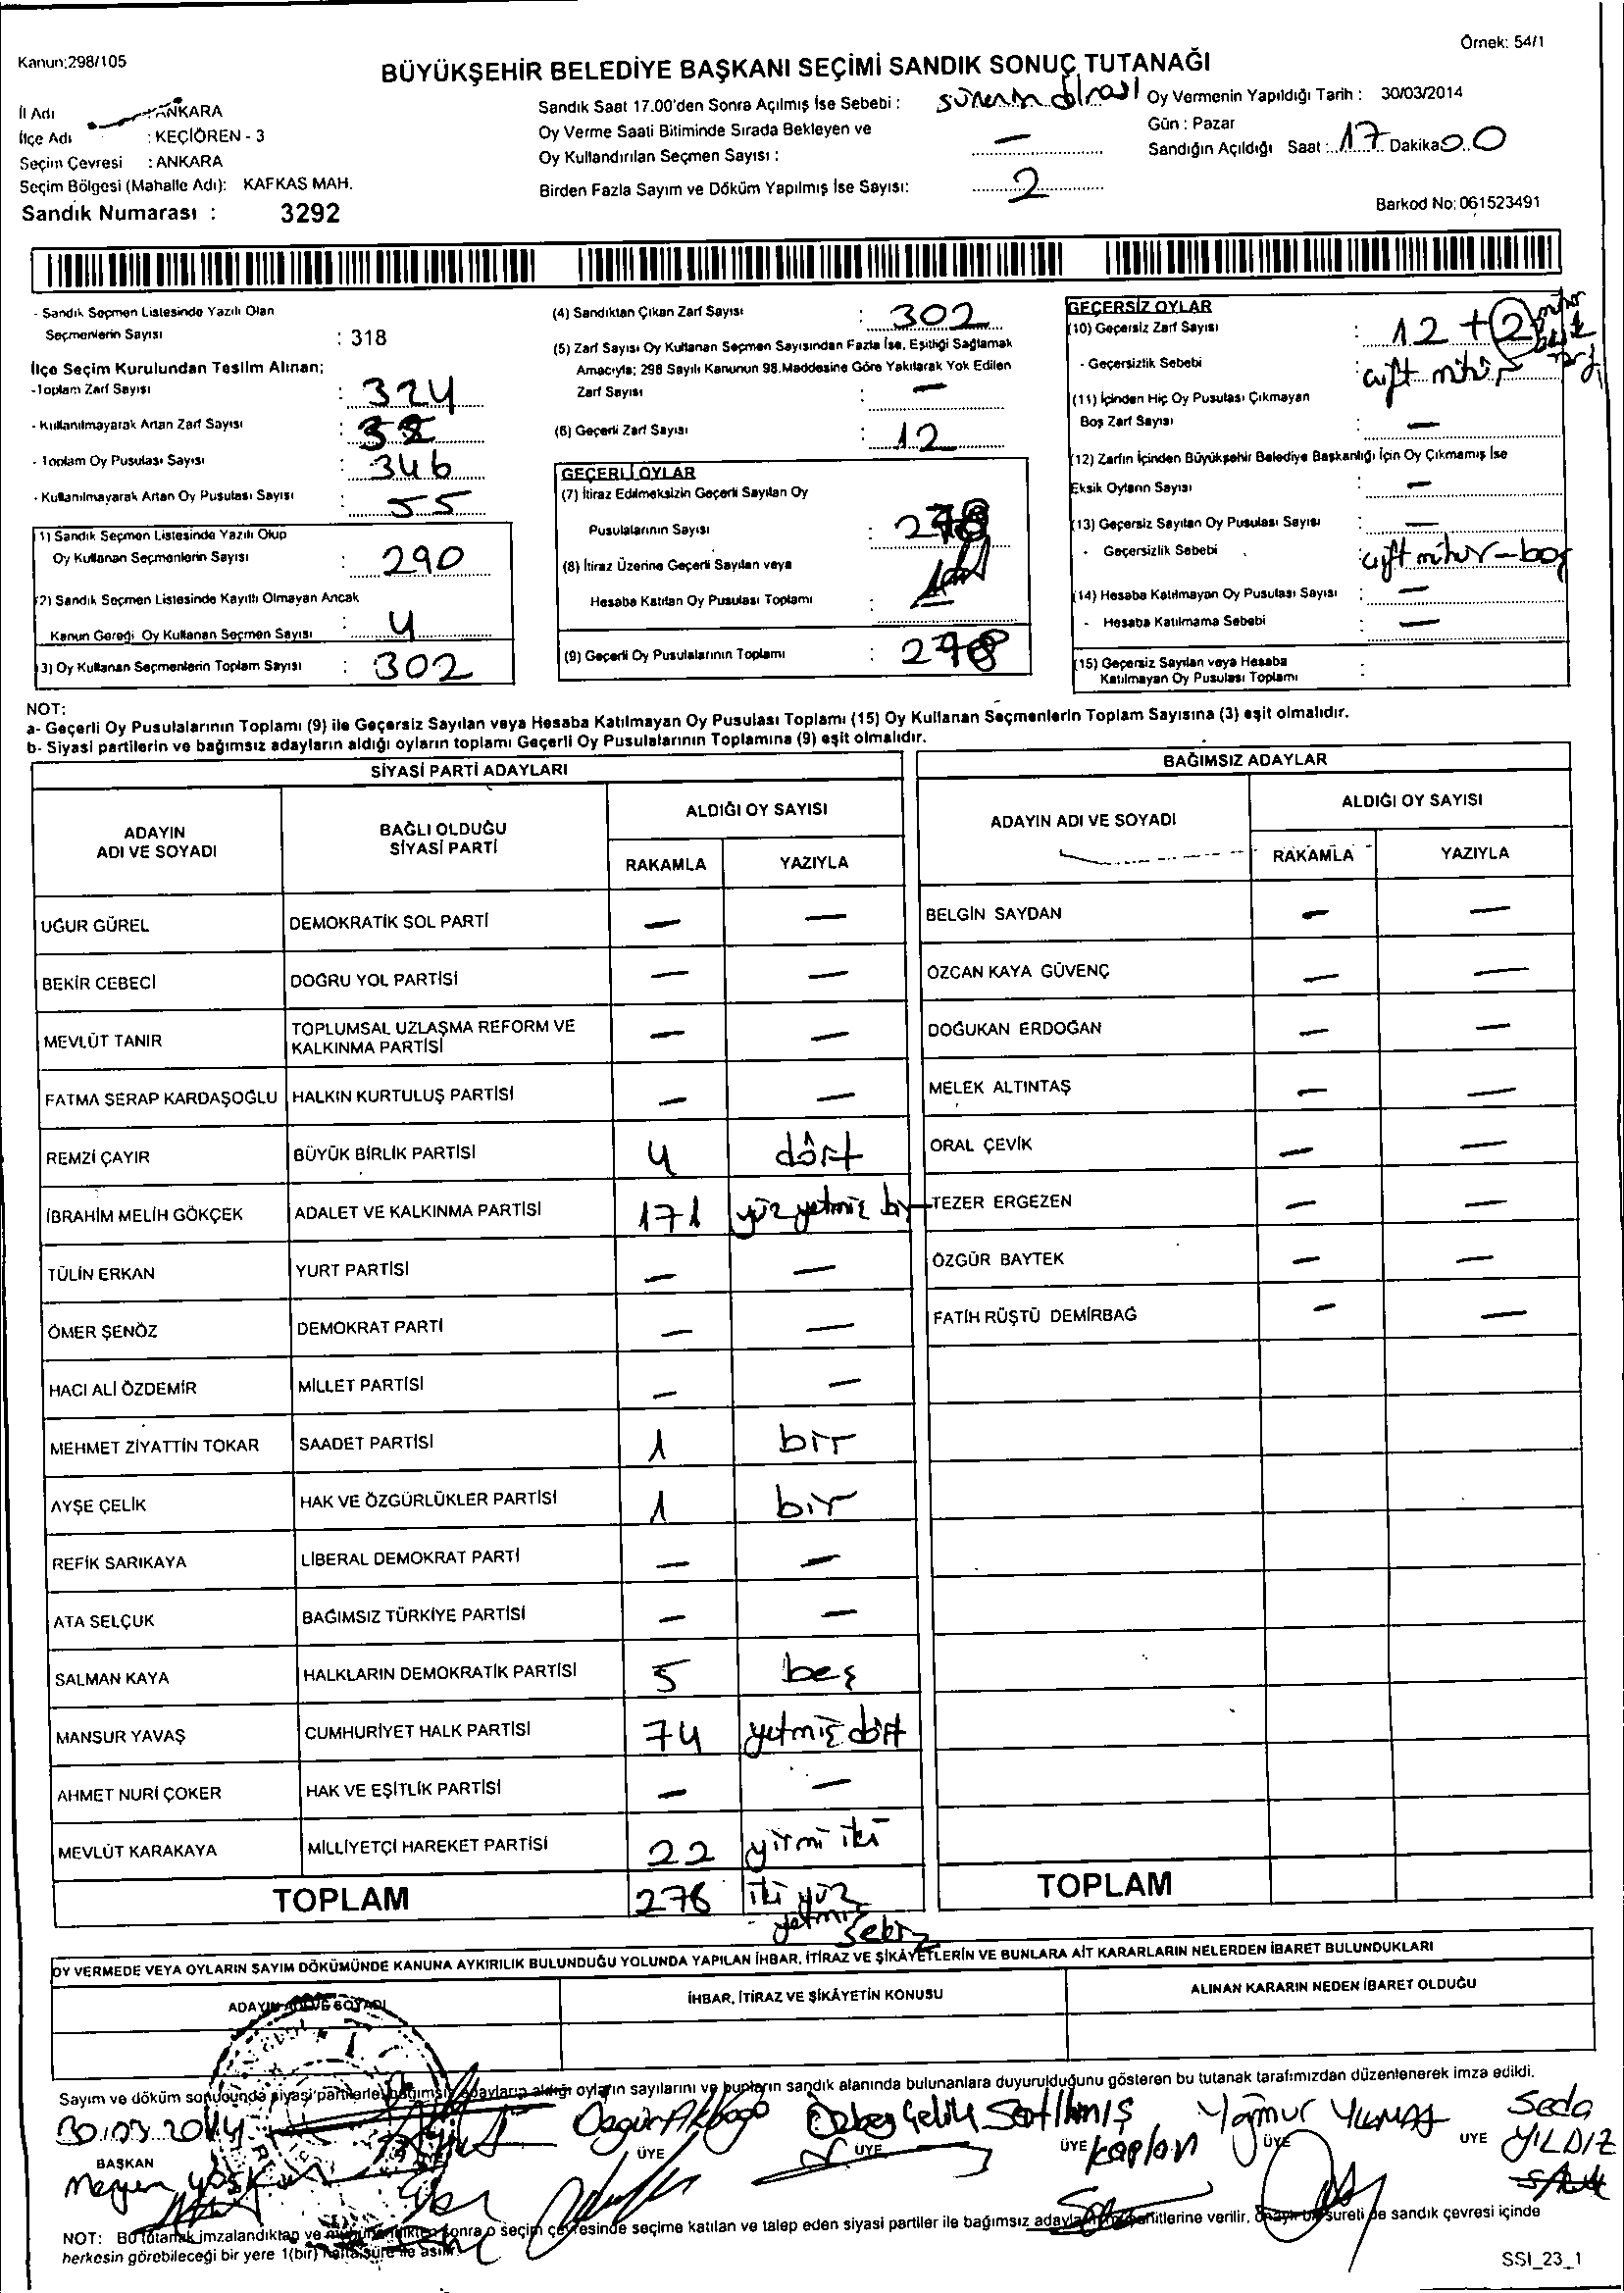 Kanun:298/105
Örnek: 54/1
BÜYÜKŞEHİR BELEDİYE BAŞKANI SEÇİMİ SANDIK SONUÇ TUTANAĞI
İl Adı : ANKARA
İlçe Adı : KEÇİÖREN - 3
Seçim Çevresi : ANKARA
Seçim Bölgesi (Mahalle Adı): KAFKAS MAH.
Sandık Numarası : 3292
Sandık Saat 17.00'den Sonra Açılmış İse Sebebi : sürenin dolması
Oy Verme Saati Bitiminde Sırada Bekleyen ve
Oy Kullandırılan Seçmen Sayısı : —
Birden Fazla Sayım ve Döküm Yapılmış İse Sayısı: 2
Oy Vermenin Yapıldığı Tarih : 30/03/2014
Gün : Pazar
Sandığın Açıldığı Saat : 17 Dakika 00
Barkod No: 061523491
- Sandık Seçmen Listesinde Yazılı Olan
Seçmenlerin Sayısı : 318
İlçe Seçim Kurulundan Teslim Alınan;
-Toplam Zarf Sayısı : 324
- Kullanılmayarak Artan Zarf Sayısı :
- Toplam Oy Pusulası Sayısı : 346
- Kullanılmayarak Artan Oy Pusulası Sayısı : 55
(1) Sandık Seçmen Listesinde Yazılı Olup
Oy Kullanan Seçmenlerin Sayısı : 290
(2) Sandık Seçmen Listesinde Kayıtlı Olmayan Ancak
Kanun Gereği Oy Kullanan Seçmen Sayısı : 4
(3) Oy Kullanan Seçmenlerin Toplam Sayısı : 302
(4) Sandıktan Çıkan Zarf Sayısı : 302
(5) Zarf Sayısı Oy Kullanan Seçmen Sayısından Fazla İse, Eşitliği Sağlamak
Amacıyla; 298 Sayılı Kanunun 98.Maddesine Göre Yakılarak Yok Edilen
Zarf Sayısı : —
(6) Geçerli Zarf Sayısı : 12
GEÇERLİ OYLAR
(7) İtiraz Edilmeksizin Geçerli Sayılan Oy
Pusulalarının Sayısı : 278
(8) İtiraz Üzerine Geçerli Sayılan veya
Hesaba Katılan Oy Pusulası Toplamı :
(9) Geçerli Oy Pusulalarının Toplamı : 278
GEÇERSİZ OYLAR
(10) Geçersiz Zarf Sayısı : 12 + 2
- Geçersizlik Sebebi : çift mühür
(11) İçinden Hiç Oy Pusulası Çıkmayan
Boş Zarf Sayısı : —
(12) Zarfın İçinden Büyükşehir Belediye Başkanlığı İçin Oy Çıkmamış İse
Eksik Oyların Sayısı : —
(13) Geçersiz Sayılan Oy Pusulası Sayısı : —
- Geçersizlik Sebebi : çift mühür-boş
(14) Hesaba Katılmayan Oy Pusulası Sayısı : —
- Hesaba Katılmama Sebebi : —
(15) Geçersiz Sayılan veya Hesaba
Katılmayan Oy Pusulası Toplamı :
NOT:
a- Geçerli Oy Pusulalarının Toplamı (9) ile Geçersiz Sayılan veya Hesaba Katılmayan Oy Pusulası Toplamı (15) Oy Kullanan Seçmenlerin Toplam Sayısına (3) eşit olmalıdır.
b- Siyasi partilerin ve bağımsız adayların aldığı oyların toplamı Geçerli Oy Pusulalarının Toplamına (9) eşit olmalıdır.
SİYASİ PARTİ ADAYLARI
ADAYIN ADI VE SOYADI
BAĞLI OLDUĞU SİYASİ PARTİ
ALDIĞI OY SAYISI
RAKAMLA YAZIYLA
UĞUR GÜREL DEMOKRATİK SOL PARTİ — —
BEKİR CEBECİ DOĞRU YOL PARTİSİ — —
MEVLÜT TANIR TOPLUMSAL UZLAŞMA REFORM VE KALKINMA PARTİSİ — —
FATMA SERAP KARDAŞOĞLU HALKIN KURTULUŞ PARTİSİ — —
REMZİ ÇAYIR BÜYÜK BİRLİK PARTİSİ 4 dört
İBRAHİM MELİH GÖKÇEK ADALET VE KALKINMA PARTİSİ 171 yüz yetmiş bir
TÜLİN ERKAN YURT PARTİSİ — —
ÖMER ŞENÖZ DEMOKRAT PARTİ — —
HACI ALİ ÖZDEMİR MİLLET PARTİSİ — —
MEHMET ZİYATTİN TOKAR SAADET PARTİSİ 1 bir
AYŞE ÇELİK HAK VE ÖZGÜRLÜKLER PARTİSİ 1 bir
REFİK SARIKAYA LİBERAL DEMOKRAT PARTİ — —
ATA SELÇUK BAĞIMSIZ TÜRKİYE PARTİSİ — —
SALMAN KAYA HALKLARIN DEMOKRATİK PARTİSİ 5 beş
MANSUR YAVAŞ CUMHURİYET HALK PARTİSİ 74 yetmiş dört
AHMET NURİ ÇOKER HAK VE EŞİTLİK PARTİSİ — —
MEVLÜT KARAKAYA MİLLİYETÇİ HAREKET PARTİSİ 22 yirmi iki
TOPLAM 278 iki yüz yetmiş sekiz
BAĞIMSIZ ADAYLAR
ADAYIN ADI VE SOYADI
ALDIĞI OY SAYISI
RAKAMLA YAZIYLA
BELGİN SAYDAN — —
ÖZCAN KAYA GÜVENÇ — —
DOĞUKAN ERDOĞAN — —
MELEK ALTINTAŞ — —
ORAL ÇEVİK — —
TEZER ERGEZEN — —
ÖZGÜR BAYTEK — —
FATİH RÜŞTÜ DEMİRBAĞ — —
TOPLAM
OY VERMEDE VEYA OYLARIN SAYIM DÖKÜMÜNDE KANUNA AYKIRILIK BULUNDUĞU YOLUNDA YAPILAN İHBAR, İTİRAZ VE ŞİKÂYETLERİN VE BUNLARA AİT KARARLARIN NELERDEN İBARET BULUNDUKLARI
ADAYIN ADI VE SOYADI
İHBAR, İTİRAZ VE ŞİKÂYETİN KONUSU
ALINAN KARARIN NEDEN İBARET OLDUĞU
Sayım ve döküm sonucunda siyasi partilerle bağımsız adayların aldığı oyların sayılarını ve bunların sandık alanında bulunanlara duyurulduğunu gösteren bu tutanak tarafımızdan düzenlenerek imza edildi.
30.03.2014 Özgür Özbey Çelik Satılmış Yağmur YILMAZ Seda
BAŞKAN ÜYE ÜYE ÜYE Kaplan ÜYE ÜYE YILDIZ
NOT: Bu tutanak imzalandıktan ve mühürlendikten sonra o seçim çevresinde seçime katılan ve talep eden siyasi partiler ile bağımsız adayların müşahitlerine verilir. Onaylı bir sureti de sandık çevresi içinde
herkesin görebileceği bir yere 1(bir) hafta süre ile asılır.
SSI_23_1